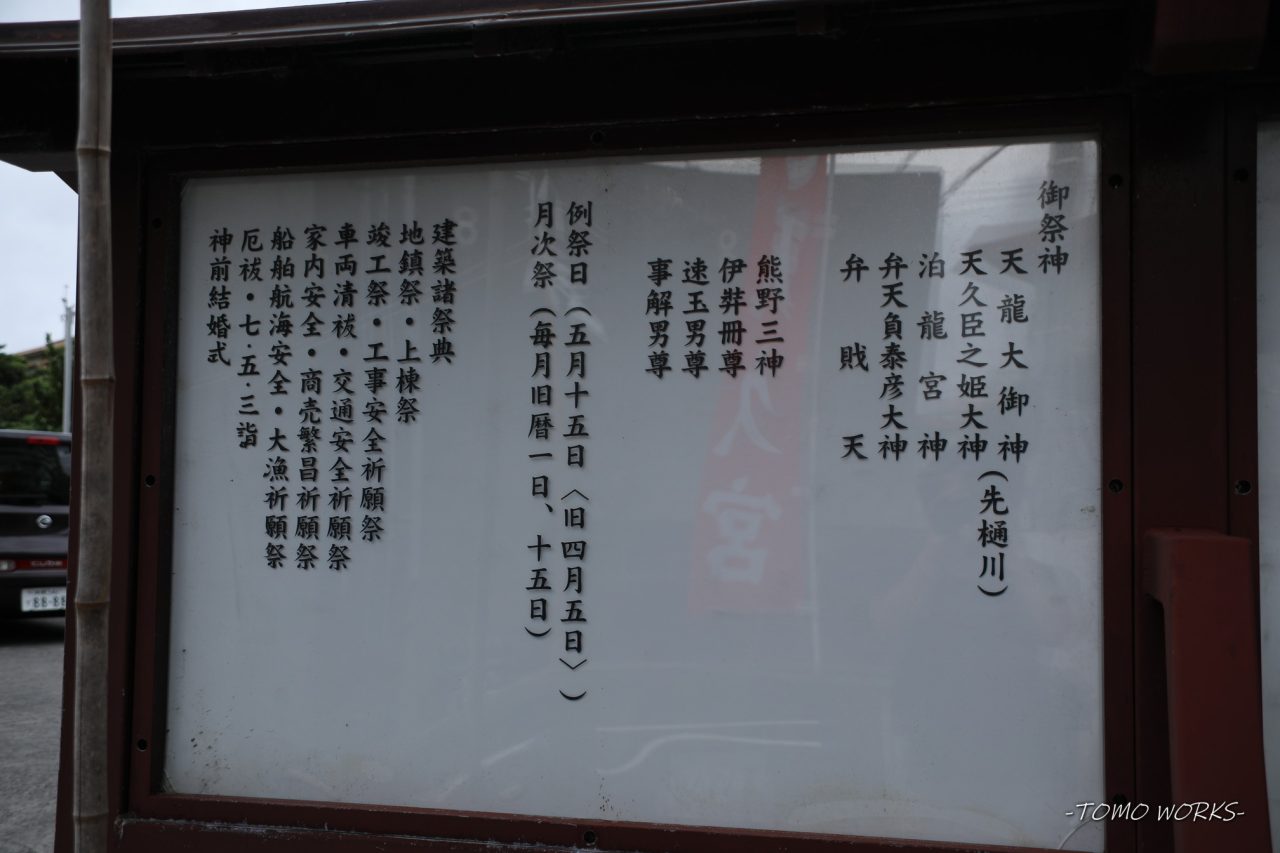 御祭神
天龍大御神
天久臣之姫大神(先樋川)
泊龍宮神
弁天負泰彦大神
弁戝天
熊野三神
伊弉冊尊
速玉男尊
事解男尊
例祭日(五月十五日〈旧四月五日〉)
月次祭(毎月旧暦一日、十五日)
建築諸祭典
地鎮祭・上棟祭
竣工祭・工事安全祈願祭
車両清祓・交通安全祈願祭
家内安全・商売繁昌祈願祭
船舶航海安全・大漁祈願祭
厄祓・七・五・三詣
神前結婚式
久宮
cube
88-88
-TOMO WORKS-